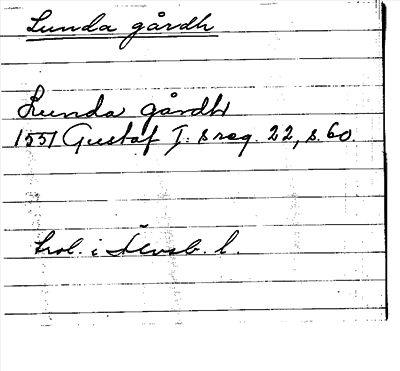 Lunda gårdh
Lunda gårdh
1551 Gustaf I: s reg. 22, s. 60.
trol. i Älvsb. l.